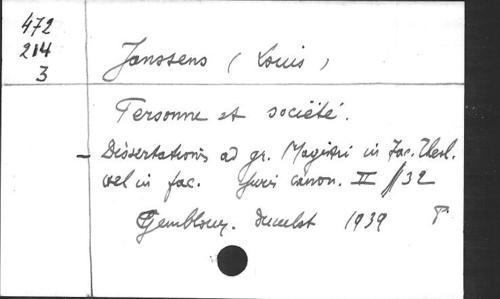 472
214
3
Janssens (Louis)
Personne et société.
- Dissertationis ad gr. Magistri in fac. Theol.
vel in fac. Juris canon. II/32
Gembloux. Duculot 1939 P